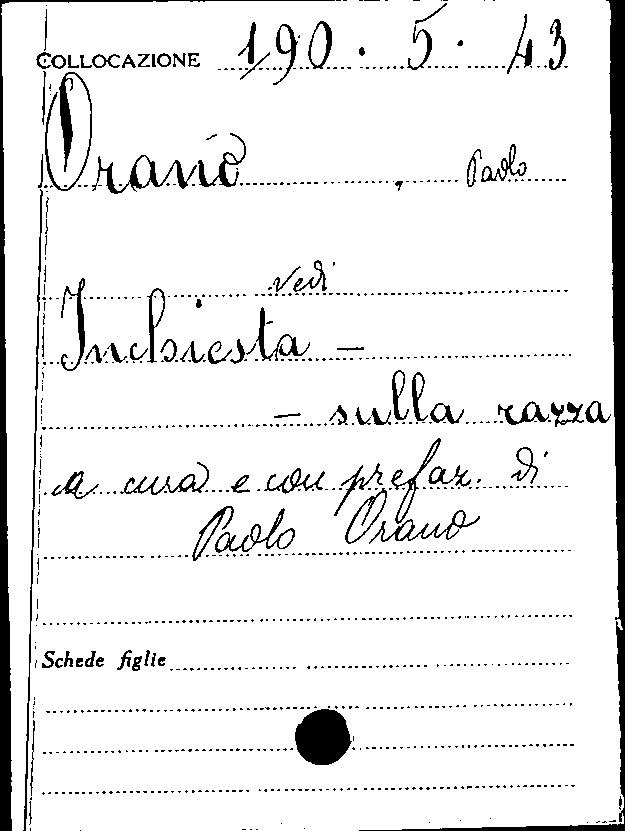 COLLOCAZIONE 190.5.43
Orano, Paolo
vedi
Inchiesta —
— sulla razza
a cura e con prefaz. di
Paolo Orano
Schede figlie